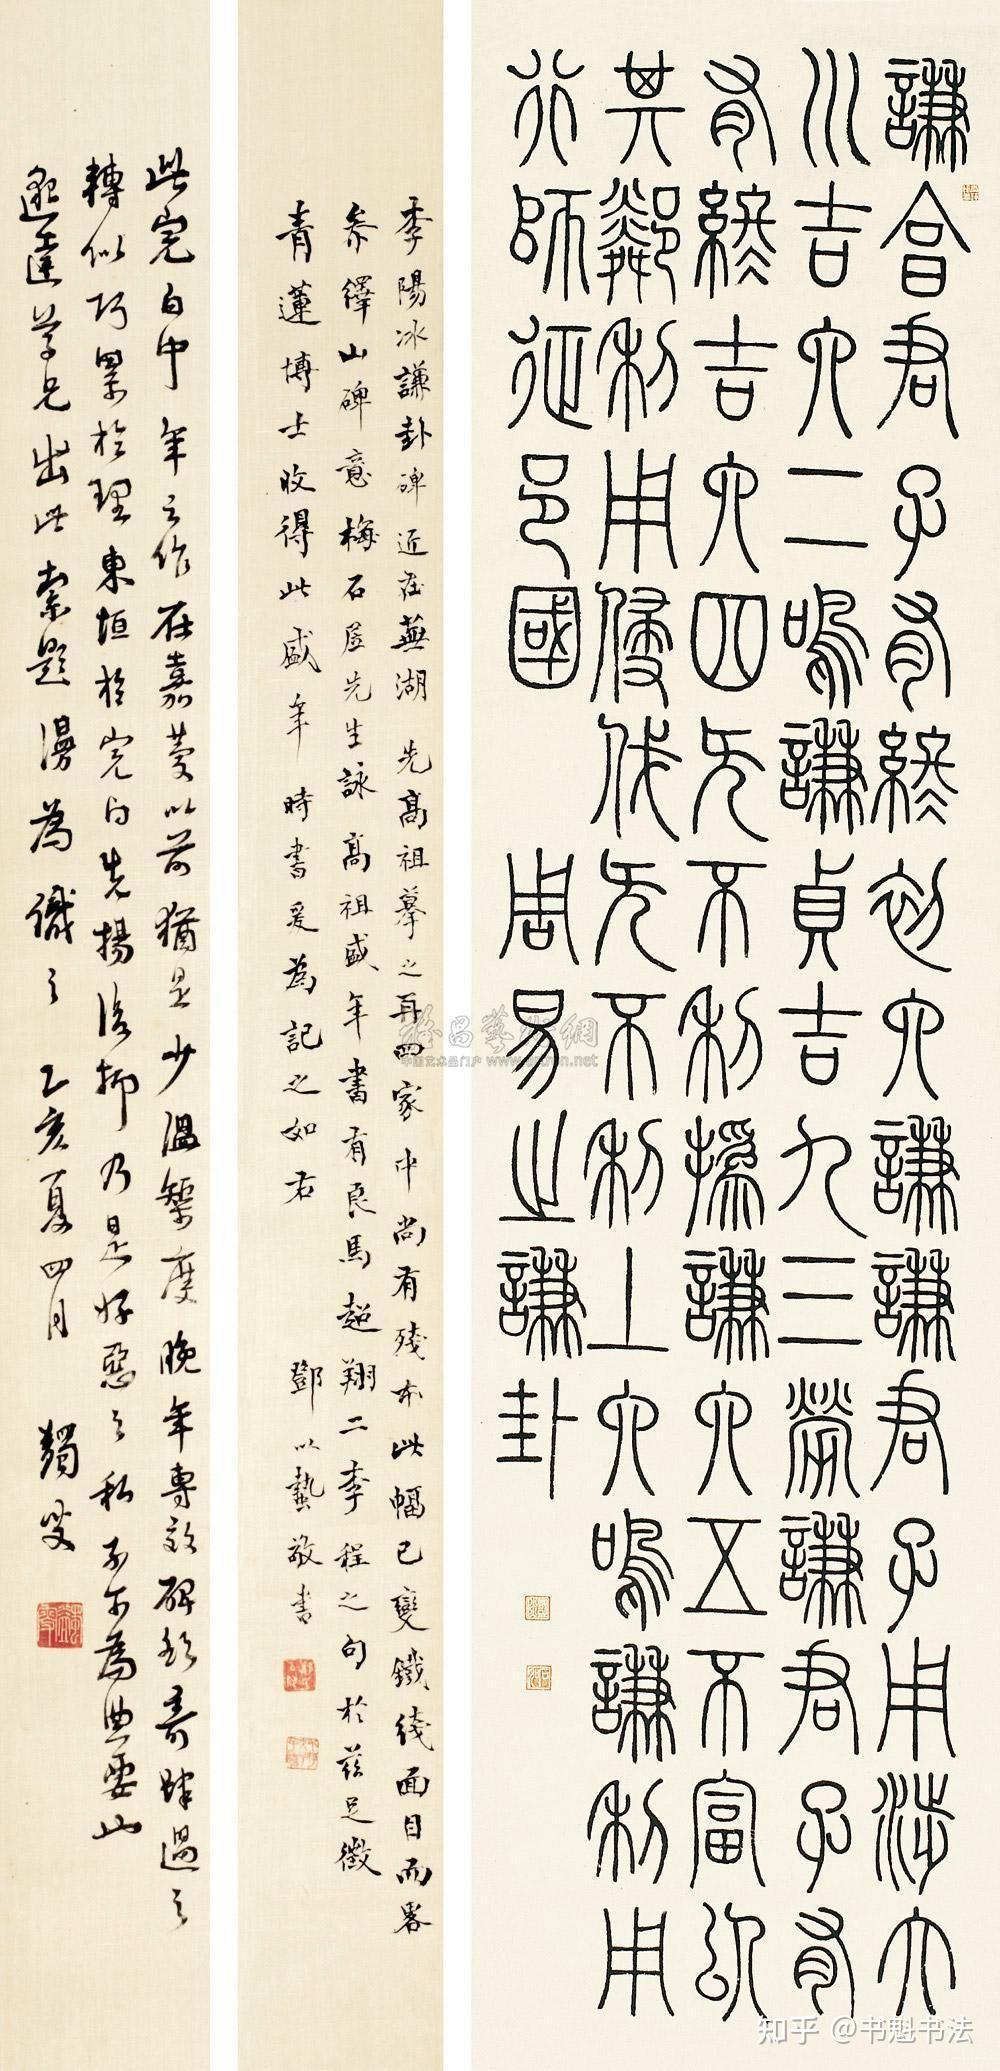 謙亯君子有終初六謙謙君子用涉大
川吉六二鳴謙貞吉九三勞謙君子有
有終吉六四无不利撝謙六五不富以
其鄰利用侵伐无不利上六鳴謙利用
行師征邑國 周易之謙卦
李陽冰謙卦碑近在蕪湖 先高祖摹之再四家中尚有殘本此幅已變鐵綫面目而畧
參繹山碑意梅石居先生詠高祖盛年書有良馬超翔二李程之句於茲足徵
青蓮博士收得此盛年時書爰為記之如右 鄧以蟄敬書
此完白中年之作在嘉慶以前猶是少溫榘度晚年專效碑額奇肆過之
轉似巧累於理東垣於完白先揚後抑乃是好惡之私不可為典要也
學兄出此索題漫為識之 乙亥夏四月 蠲叟
雅昌藝術網
中国艺术品门户 www.artron.net
知乎 @书魁书法